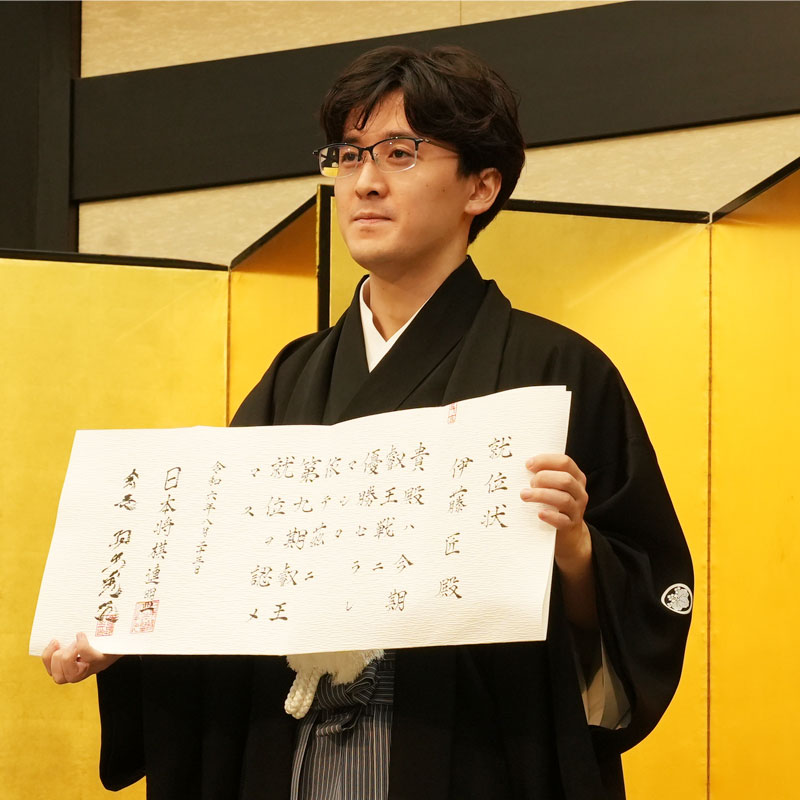 就位状
伊藤匠殿
貴殿ハ今期
叡王戦ニ
優勝セラレ
マシタ
依テ茲ニ
第九期叡王
就位ヲ認メ
マス
令和六年八月
日本将棋連盟
会長 羽生善治